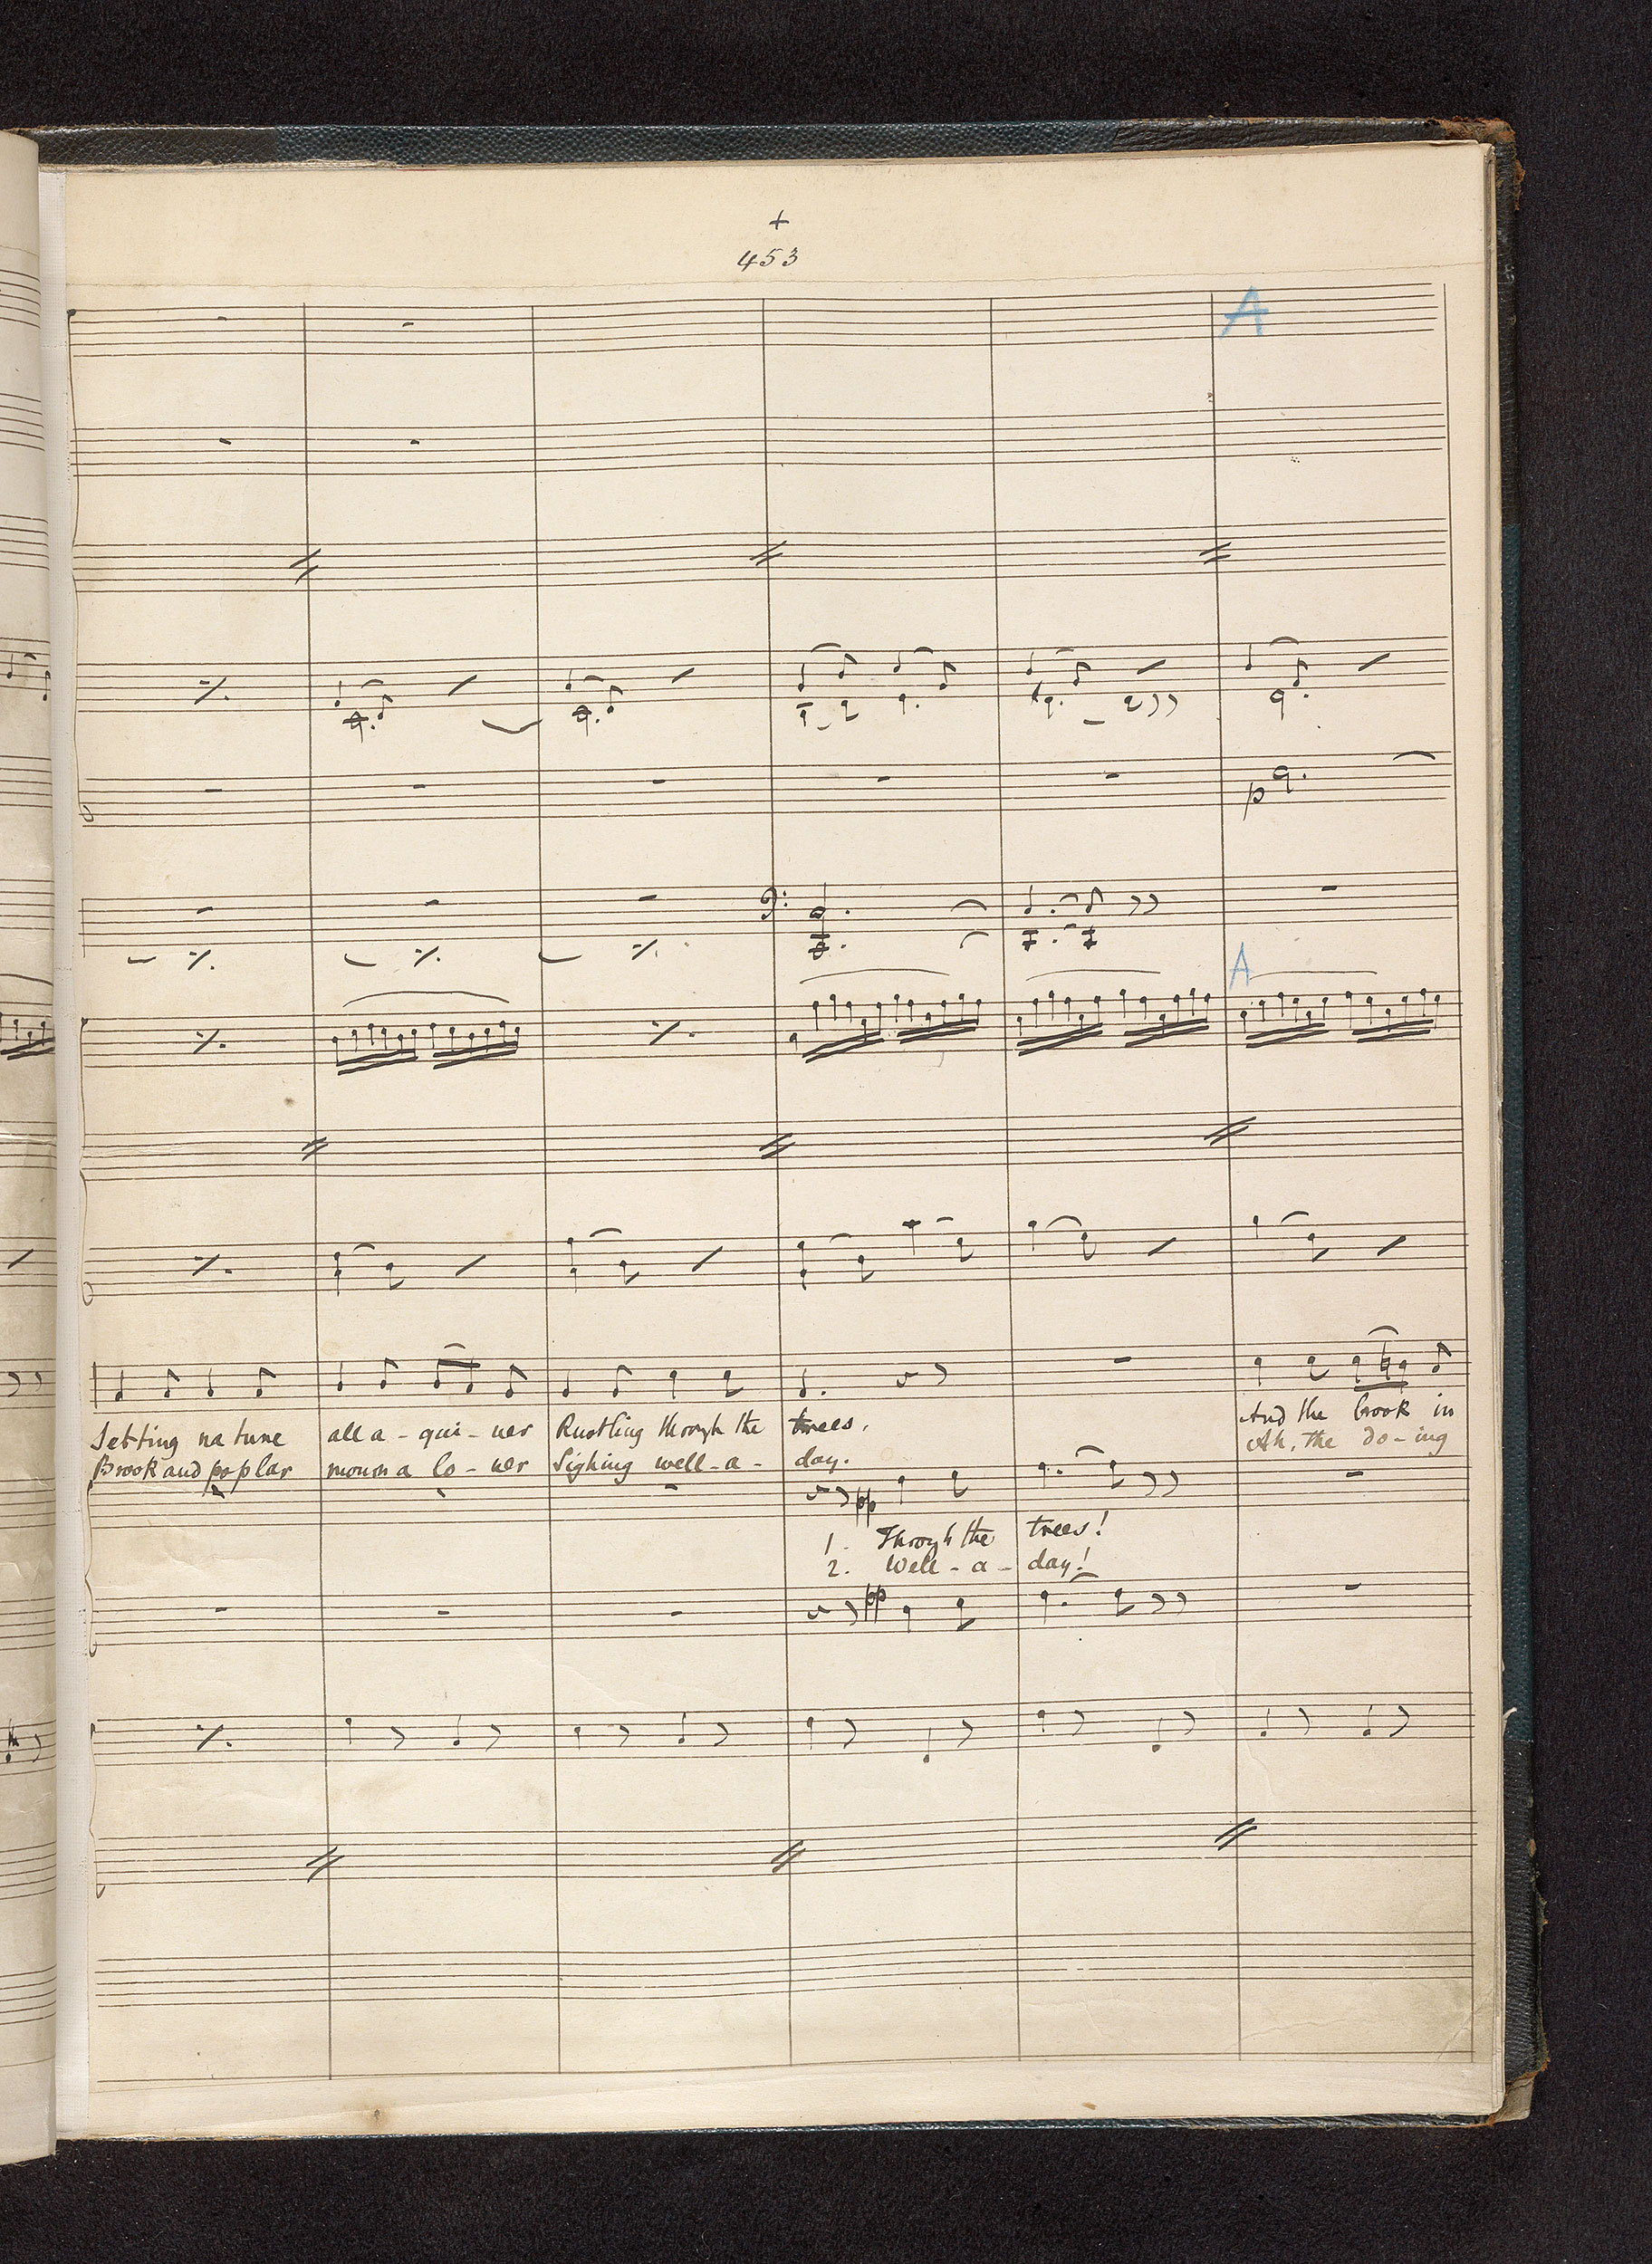 +
453
A
p
A
Setting na ture all a - qui - ver Rustling through the trees. And the brook in
Brook and poplar mourn a lo - ver Sighing well - a - day. Ah, the do - ing
pp
1. Through the trees!
2. Well - a - day!
pp